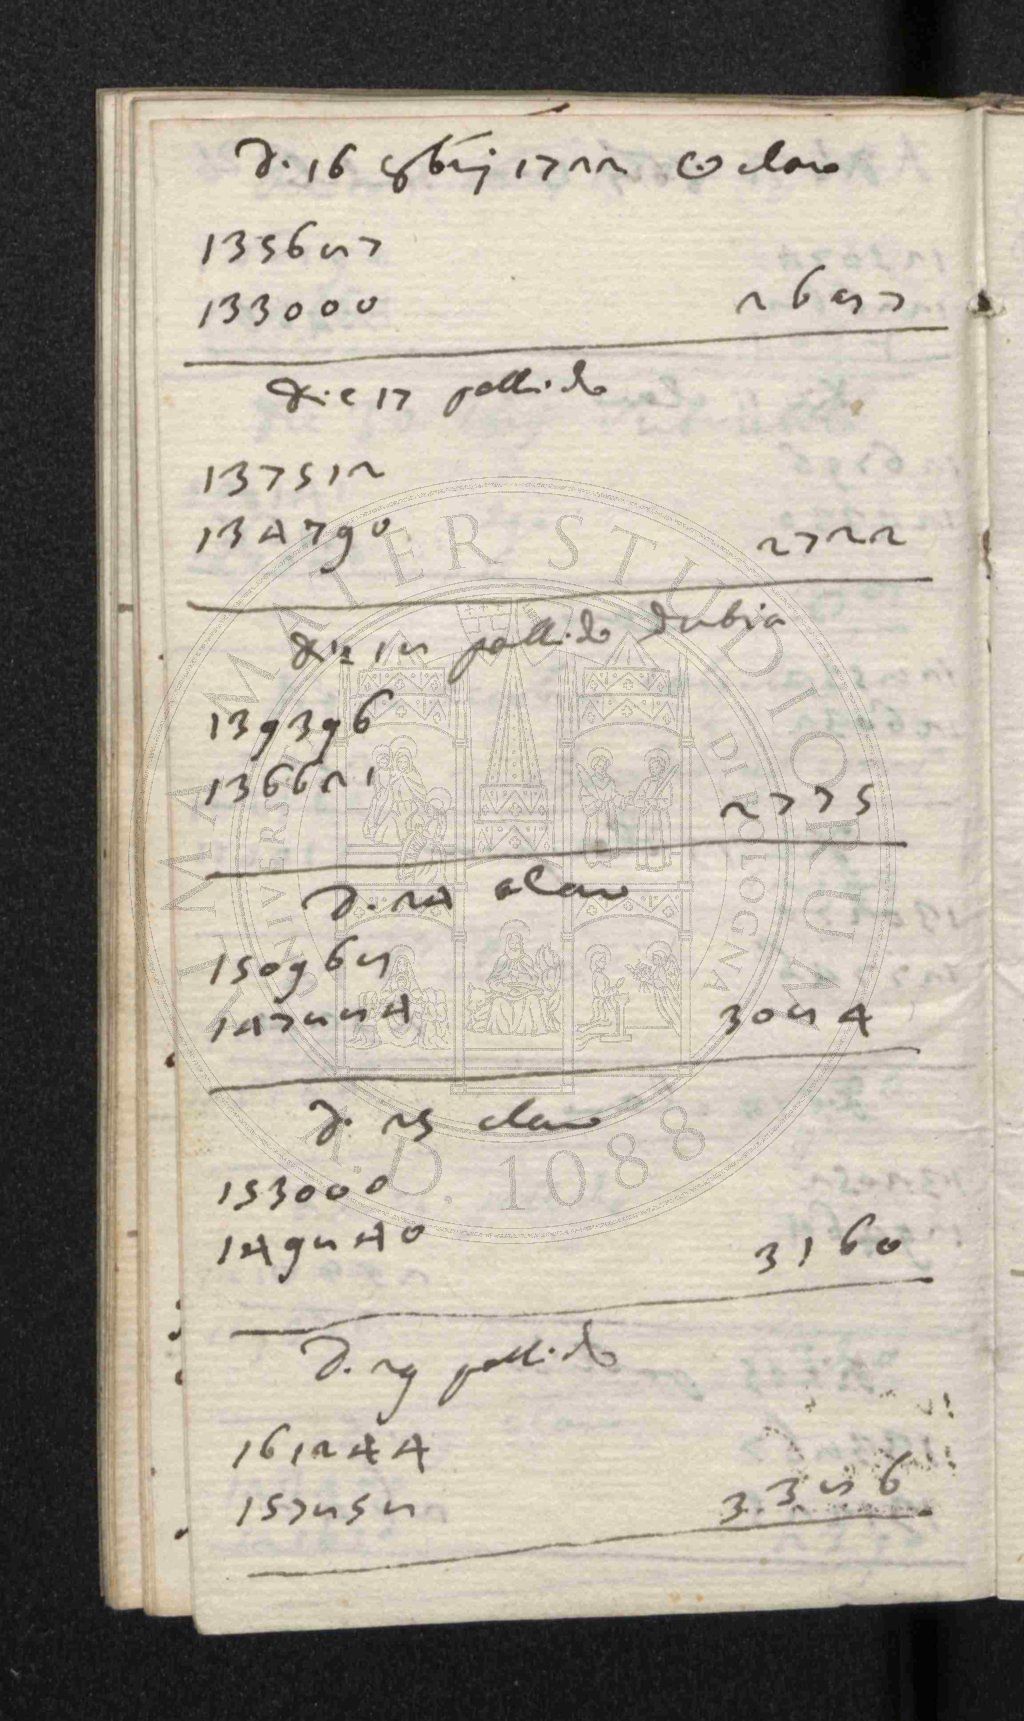 D. 16 8brij 1722 ☉ claro
135687
133000 2687
Die 17 pallido
137512
134790 2722
Die 18 pallido dubia
139396
136621 2775
D. 24 claro
150968
147884 3084
D. 25 claro
153000
149840 3160
D. 29 pallido
161244
157858 3386
ALMA MATER STUDIORUM
UNIVERSITÀ DI BOLOGNA
A.D. 1088